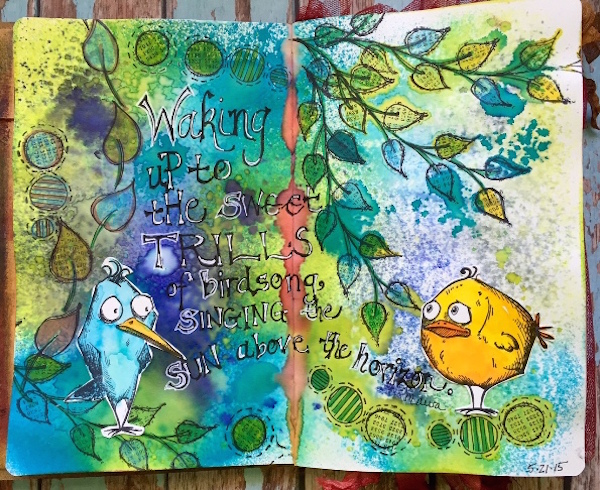 Waking
up to
the sweet
TRILLS
of birdsong,
SINGING the
SUN above the horizon.
5-21-15